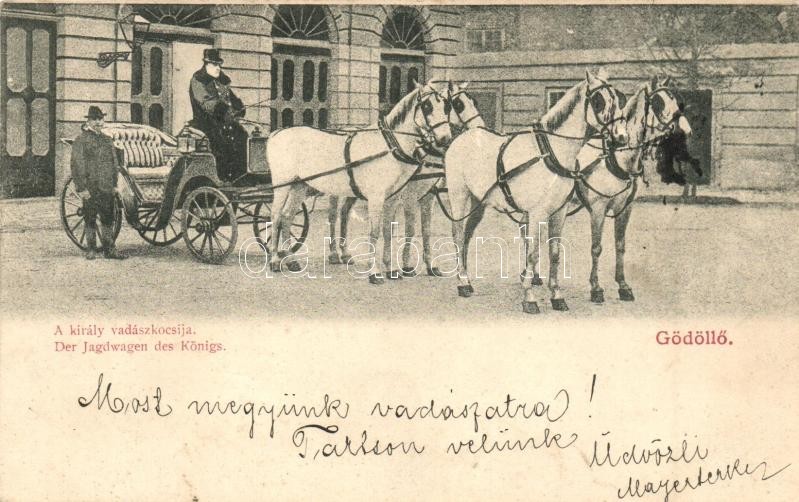 A király vadászkocsija.
Der Jagdwagen des Königs.
Gödöllő.
darabanth.com
Most megyünk vadászatra!
Tartson velünk
Üdvözli